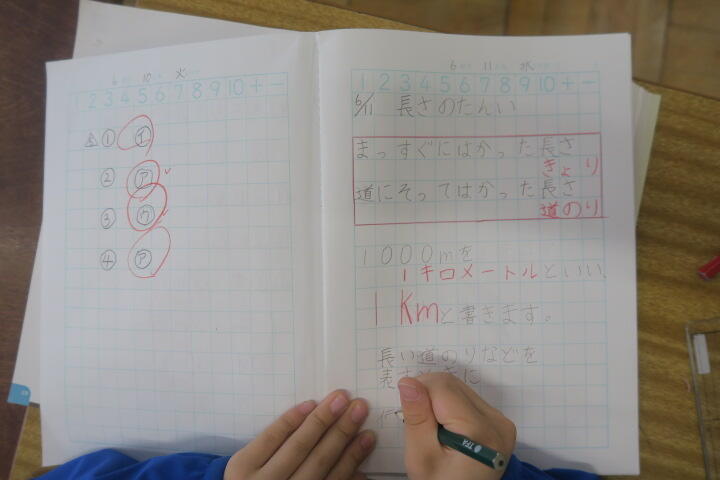 6 10 火
1 2 3 4 5 6 7 8 9 10 + −
① イ
② ア
③ ウ
④ ア
6 11 水
1 2 3 4 5 6 7 8 9 10 + −
6/11 長さのたんい
まっすぐにはかった長さ
きょり
道にそってはかった長さ
道のり
1000mを
1キロメートルといい、
1Kmと書きます。
長い道のりなどを
表すときに